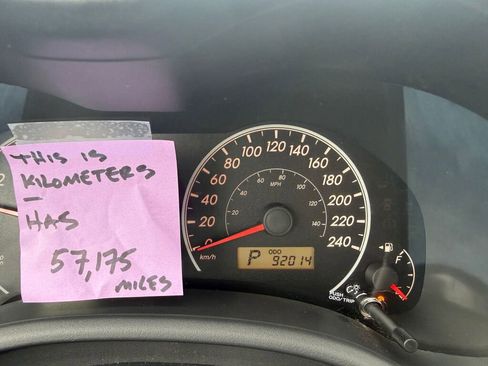 THIS IS
KILOMETERS
—
HAS
57,175
MILES
0
20
40
60
80
100
120
140
160
180
200
220
240
km/h
MPH
20
40
60
80
100
120
140
ODO
P 92014
PUSH
ODO/TRIP
F